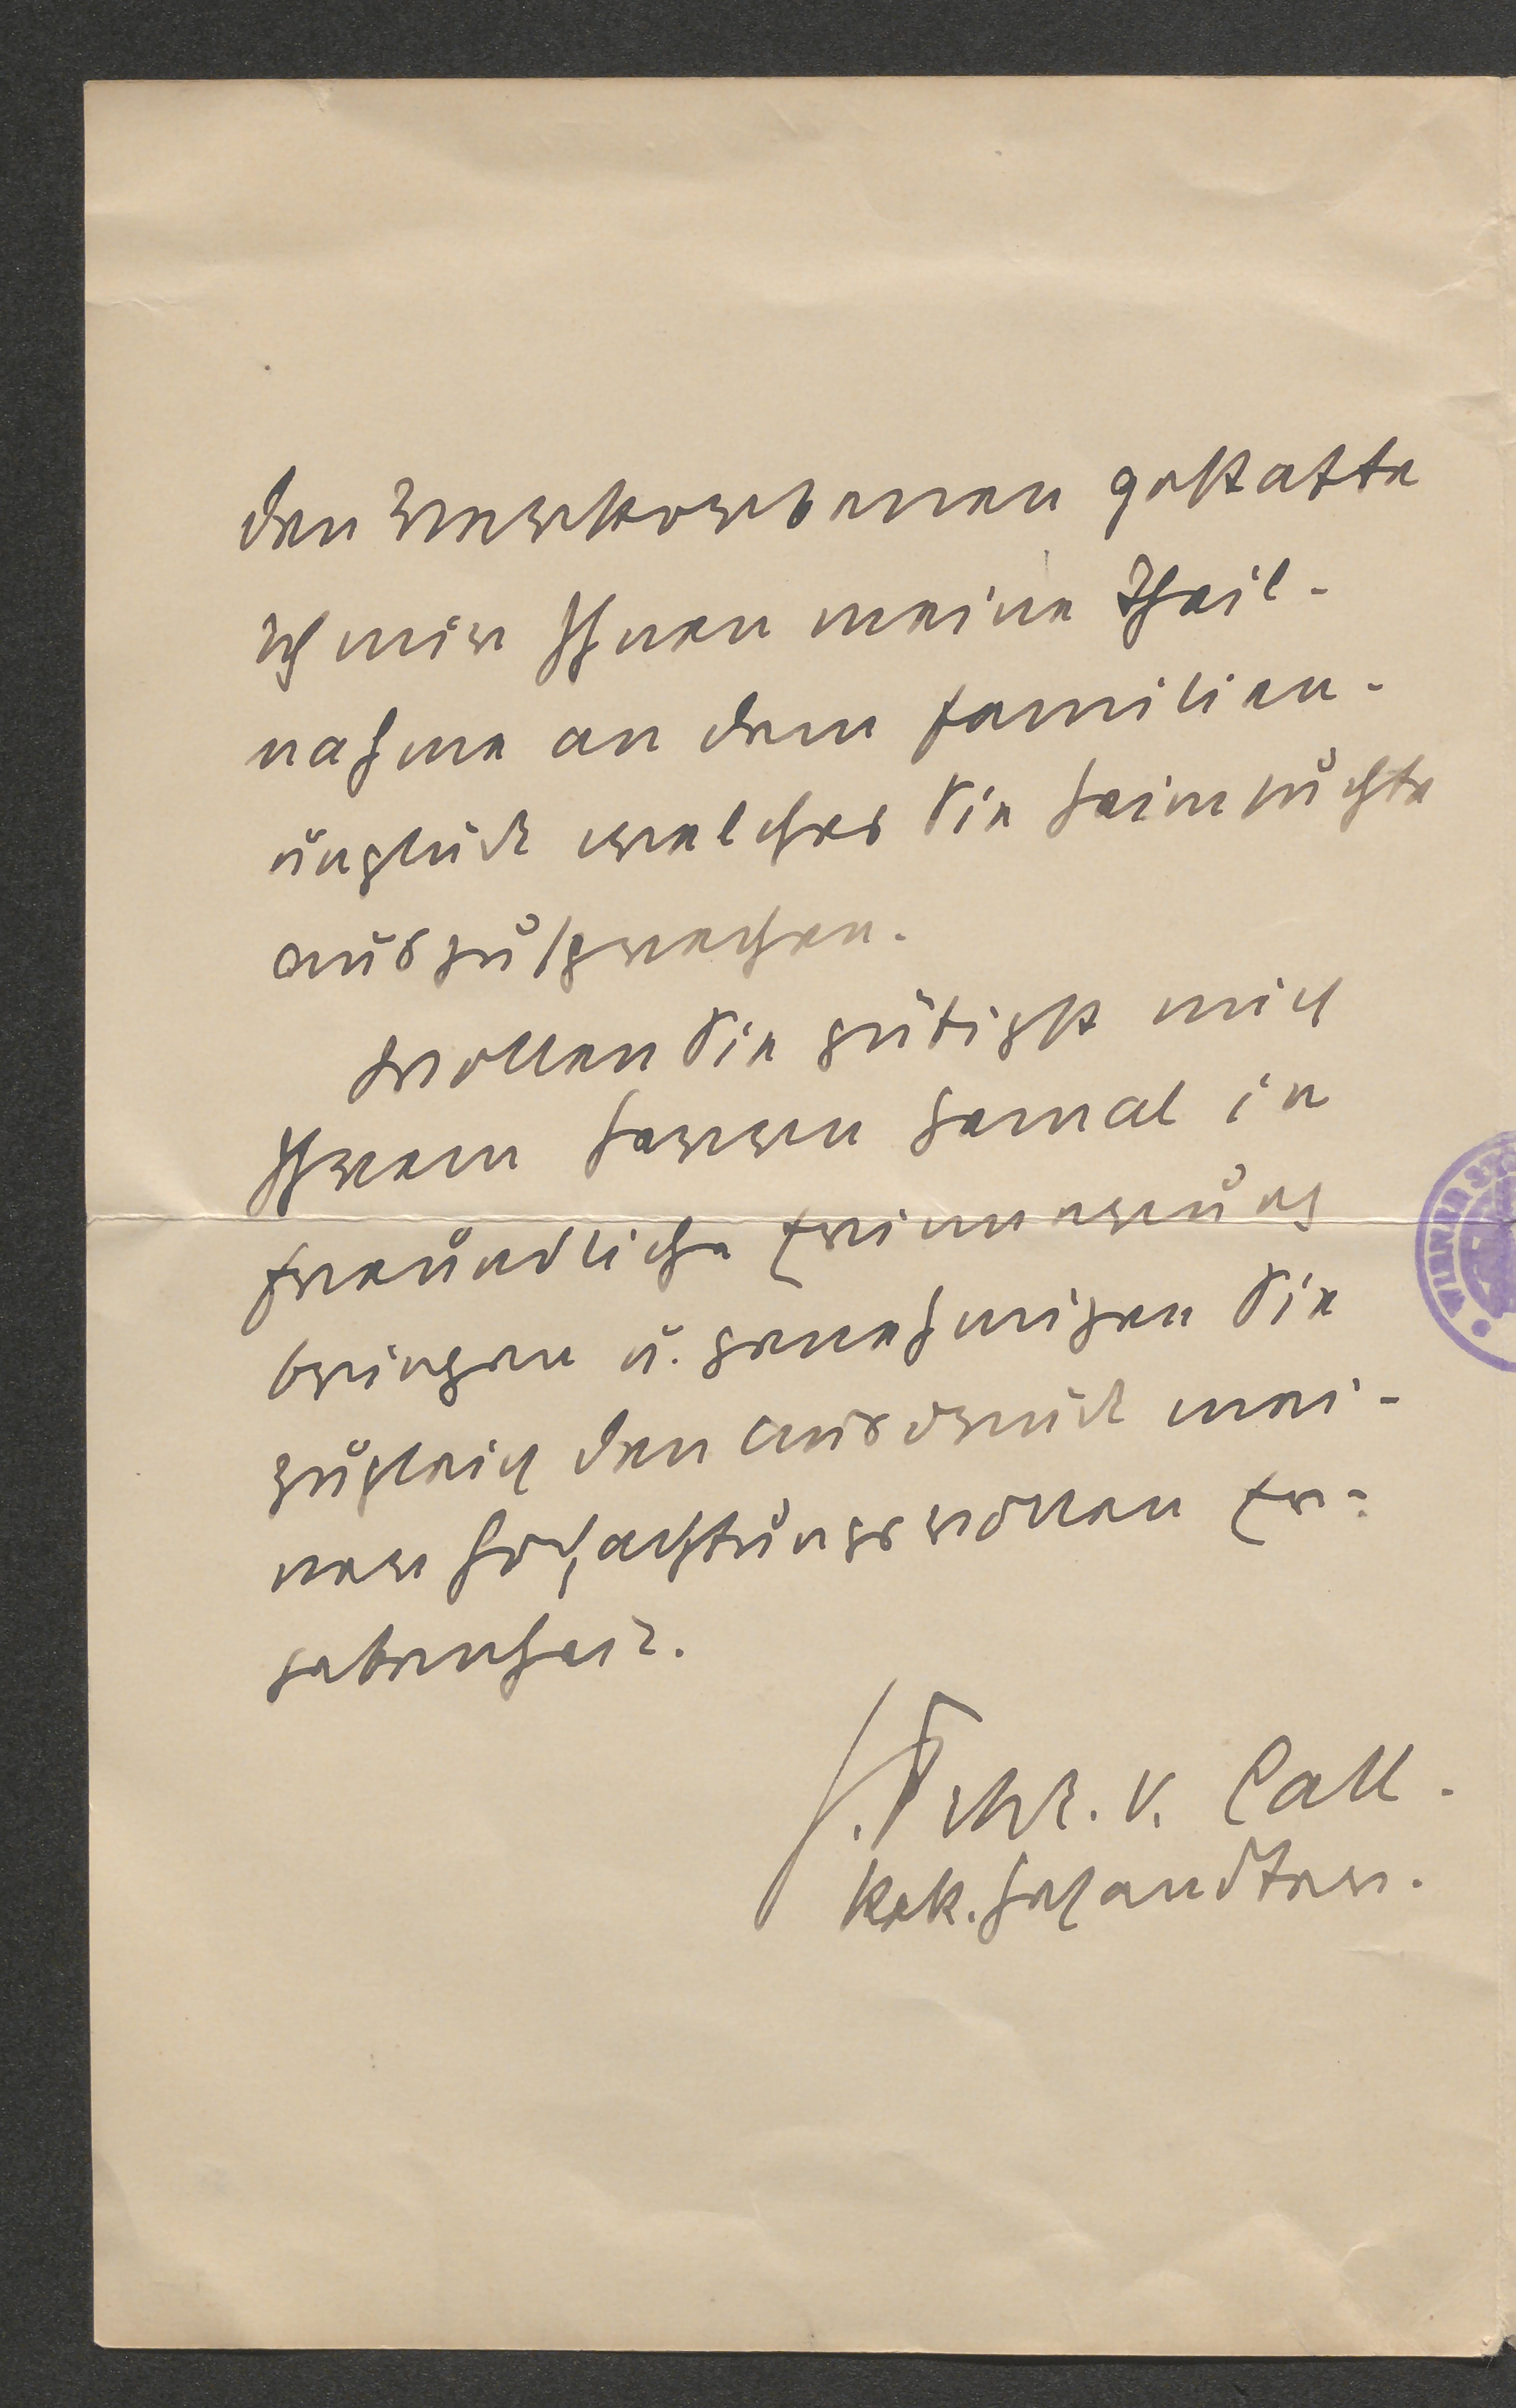 den Verstorbenen gestatte
ich mir Ihnen meine Theil-
nahme an dem Familien-
unglück welches Sie heimsuchte
auszusprechen.
Wollen Sie gütigst mich
Ihrem Herrn Gemal in
freundliche Erinnerung
bringen u. genehmigen Sie
zugleich den Ausdruck mei-
ner hochachtungsvollen Er-
gebenheit.
Frhr. v. Call.
k.u.k. Gesandter.
WIENER ST